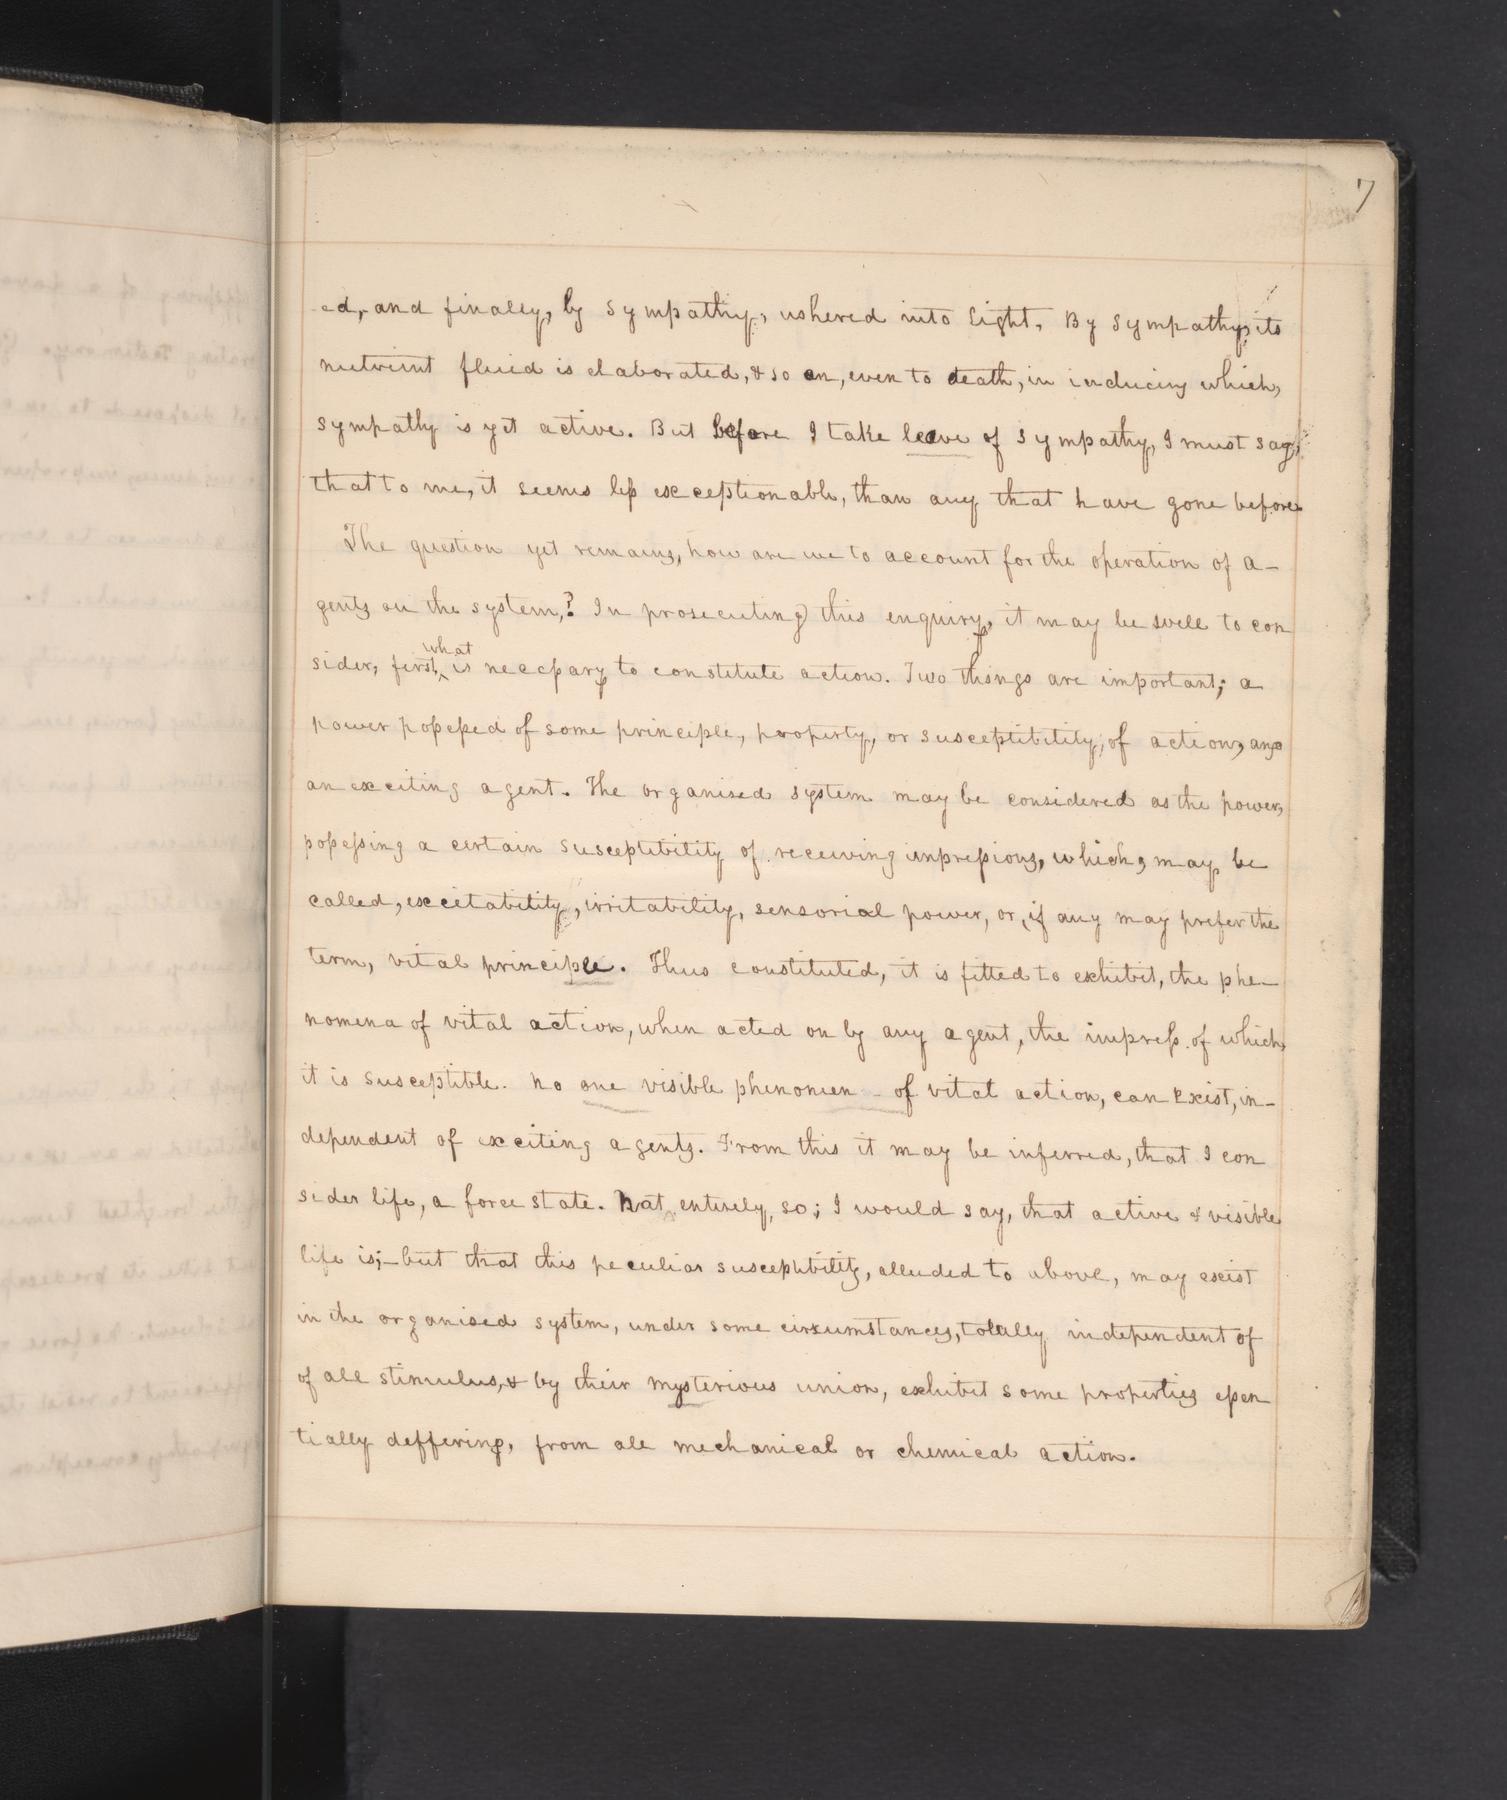 7
ed, and finally, by sympathy, ushered into light. By sympathy, its
nutrient fluid is elaborated, & so on, even to death, in inducing which,
sympathy is yet active. But before I take leave of sympathy, I must say,
that to me, it seems less exceptionable, than any that have gone before
The question yet remains, how are we to account for the operation of a-
gents on the system,? In prosecuting this enquiry, it may be well to con
sider, first, what is necessary to constitute action. Two things are important; a
power possessed of some principle, property, or susceptibility, of action, and
an exciting agent. The organised system may be considered as the power,
possessing a certain susceptibility of receiving impressions, which, may be
called, excitability, irritability, sensorial power, or, if any may prefer the
term, vital principle. Thus constituted, it is fitted to exhibit, the phe-
nomena of vital action, when acted on by any agent, the impress of which,
it is susceptible. No one visible phenomen of vital action, can exist, in-
dependent of exciting agents. From this it may be inferred, that I con
sider life, a force state. Not entirely, so; I would say, that active & visible
life is;- but that this peculiar susceptibility, alluded to above, may exist
in the organised system, under some circumstances, totally independent of
of all stimulus, & by their mysterious union, exhibit some properties essen
tially deffering, from all mechanical or chemical action.